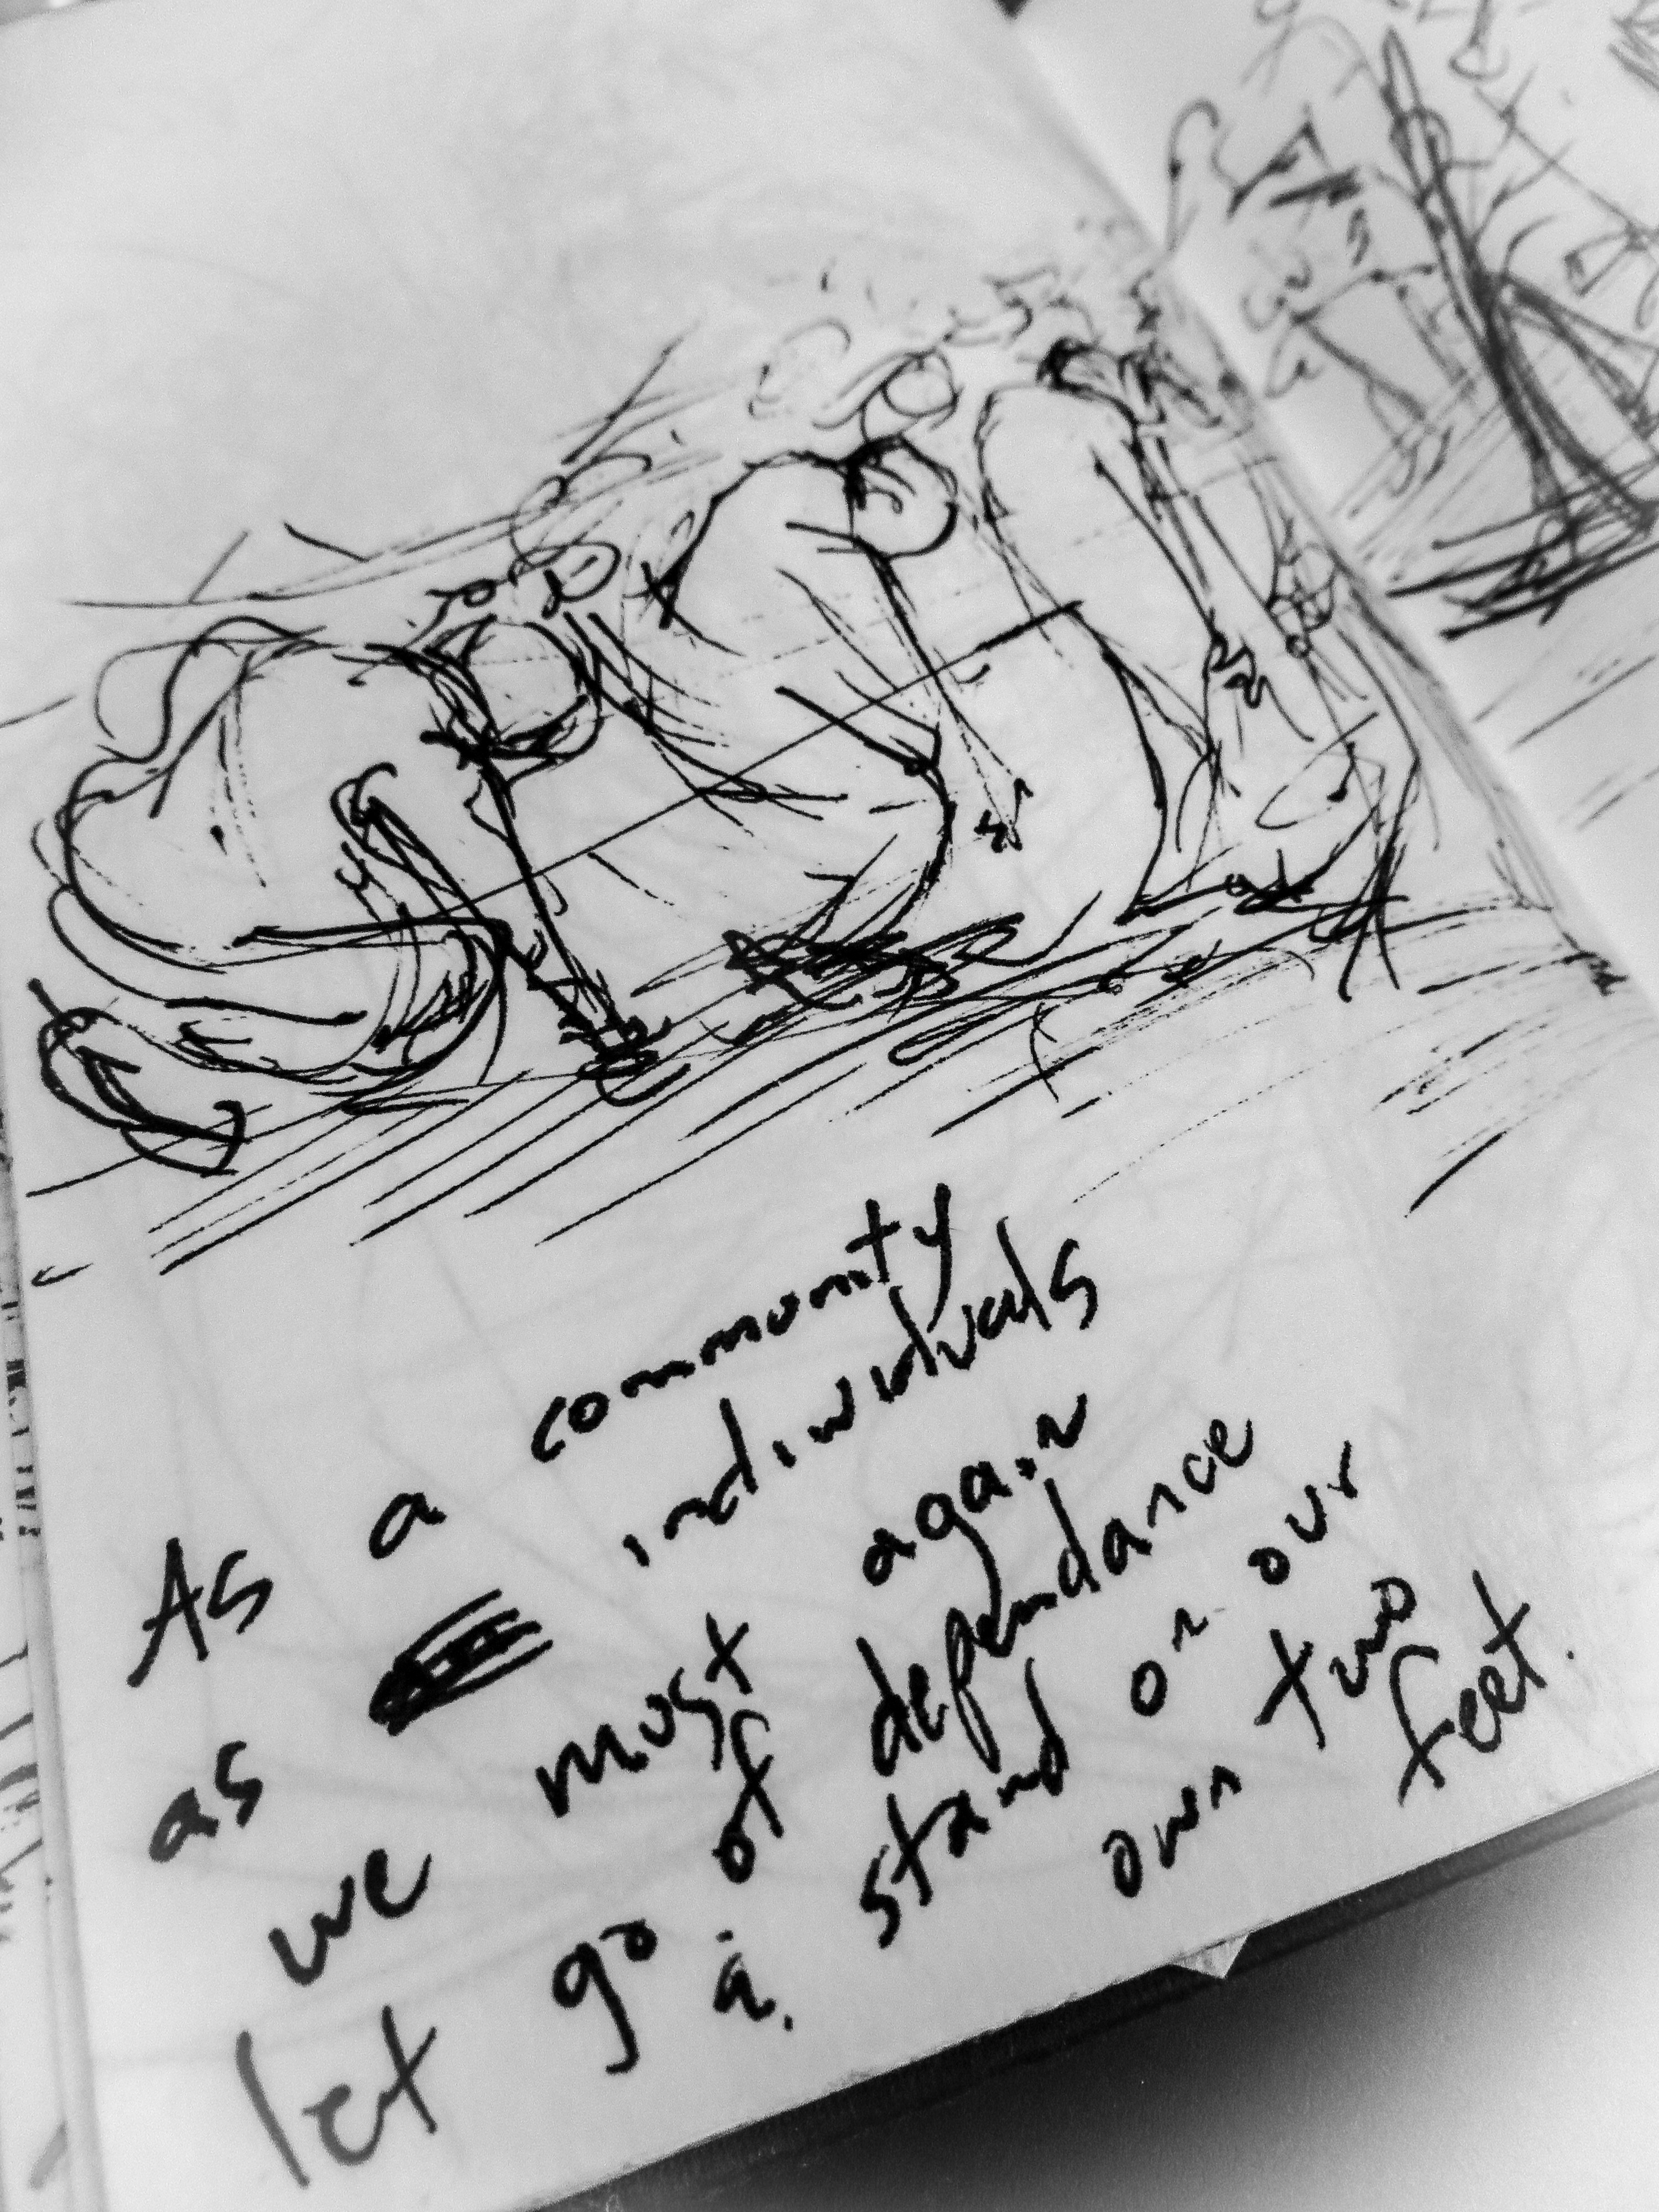 As a community
as individuals
we must again
let go of dependance
stand on our
own two
feet.